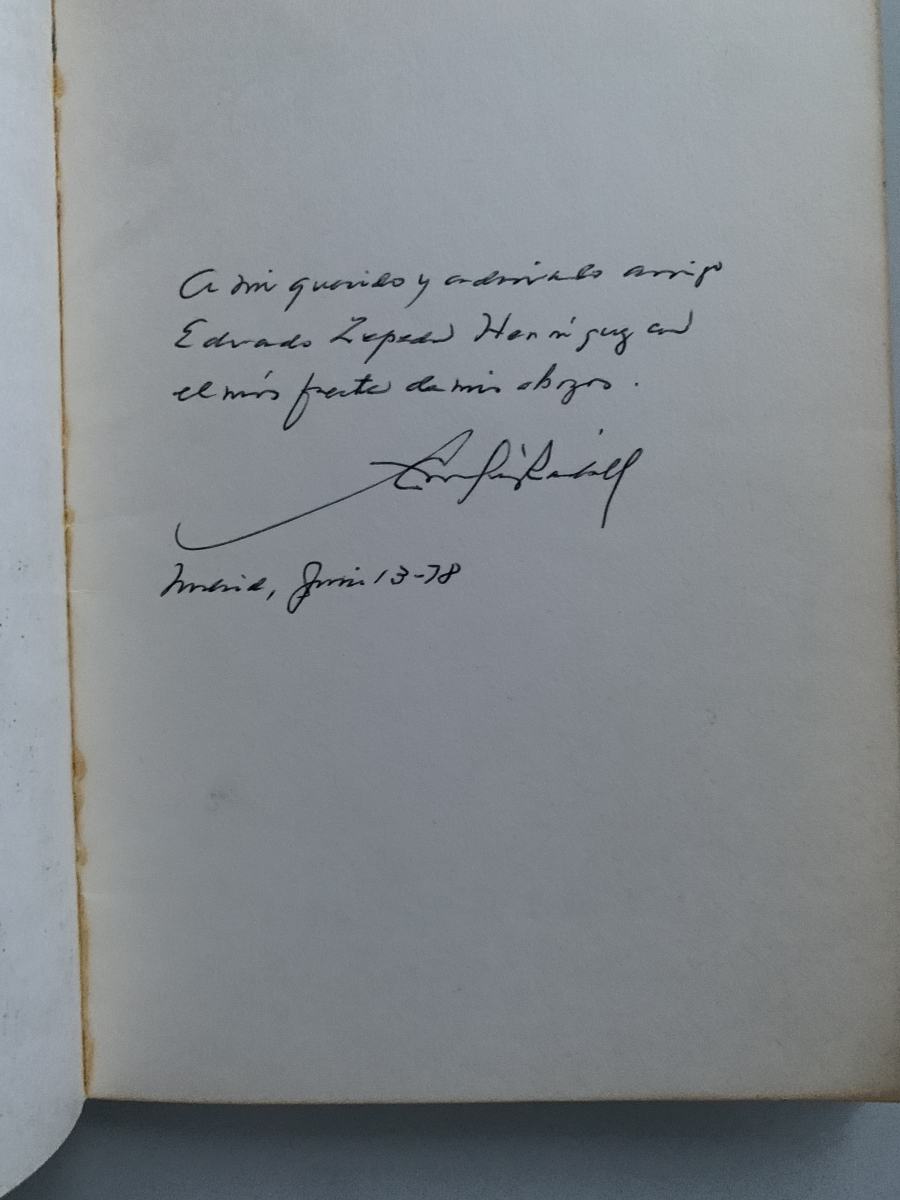 A mi querido y admirado amigo
Eduardo Zepeda Henríquez con
el más fuerte de mis abrazos.
Madrid, Junio 13-78